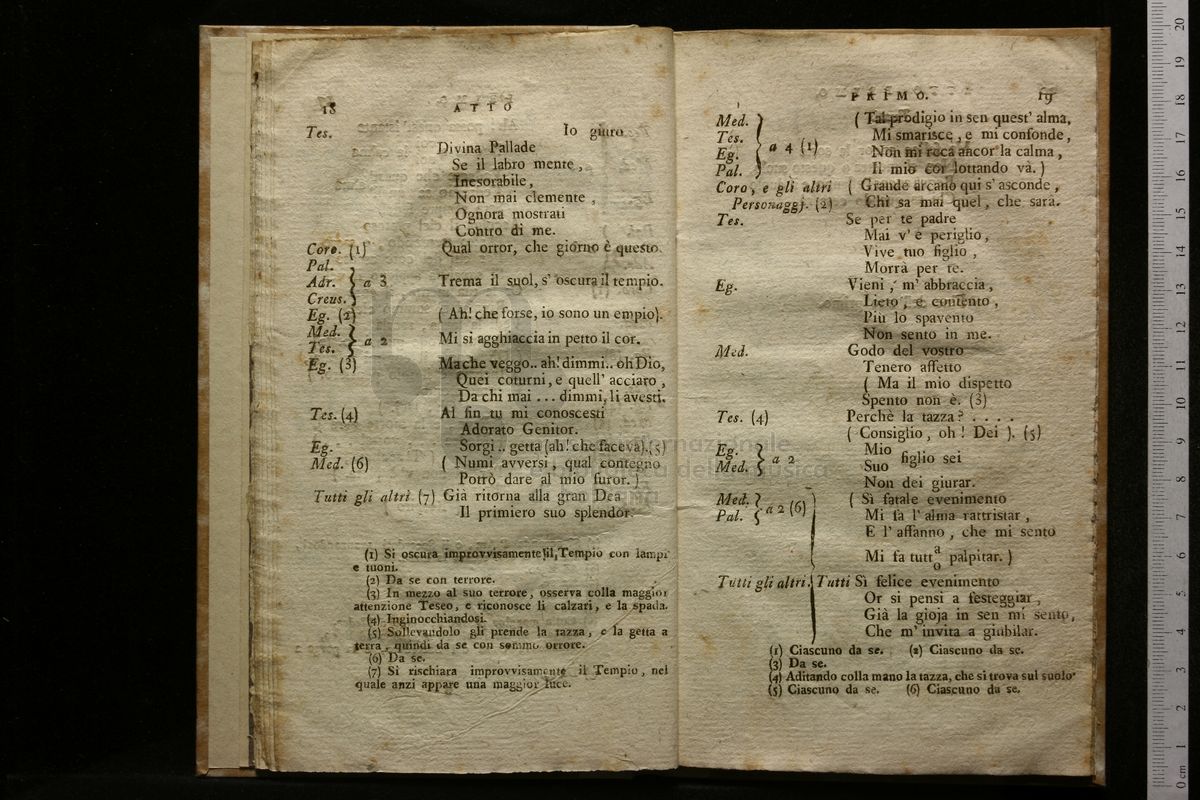 18 ATTO
Tes. Io giuro
Divina Pallade
Se il labro mente,
Inesorabile,
Non mai clemente,
Ognora mostrati
Contro di me.
Coro. (1) Qual orror, che giorno è questo.
Pal.
Adr. } a 3 Trema il suol, s' oscura il tempio.
Creus.
Eg. (2) (Ah! che forse, io sono un empio).
Med.
Tes. } a 2 Mi si agghiaccia in petto il cor.
Eg. (3) Ma che veggo.. ah! dimmi.. oh Dio,
Quei coturni, e quell' acciaro,
Da chi mai ... dimmi, li avesti.
Tes. (4) Al fin tu mi conoscesti
Adorato Genitor.
Eg. Sorgi.. getta (ah! che faceva).(5)
Med. (6) ( Numi avversi, qual contegno
Potrò dare al mio furor. )
Tutti gli altri (7) Già ritorna alla gran Dea
Il primiero suo splendor.
(1) Si oscura improvvisamente il Tempio con lampi
e tuoni.
(2) Da se con terrore.
(3) In mezzo al suo terrore, osserva colla maggior
attenzione Teseo, e riconosce li calzari, e la spada.
(4) Inginocchiandosi.
(5) Sollevandolo gli prende la tazza, e la getta a
terra, quindi da se con sommo orrore.
(6) Da se.
(7) Si rischiara improvvisamente il Tempio, nel
quale anzi appare una maggior luce.
PRIMO. 19
Med.
Tes.
Eg. } a 4 (1)
Pal.
( Tal prodigio in sen quest' alma,
Mi smarisce, e mi confonde,
Non mi reca ancor la calma,
Il mio cor lottando và. )
Coro, e gli altri ( Grande arcano qui s' asconde,
Personaggj. (2) Chi sa mai quel, che sarà.
Tes. Se per te padre
Mai v' è periglio,
Vive tuo figlio,
Morrà per te.
Eg. Vieni, m' abbraccia,
Lieto, e contento,
Più lo spavento
Non sento in me.
Med. Godo del vostro
Tenero affetto
( Ma il mio dispetto
Spento non è. (3)
Tes. (4) Perchè la tazza? ....
( Consiglio, oh! Dei ). (5)
Eg.
Med. } a 2 Mio
Suo figlio sei
Non dei giurar.
Med.
Pal. } a 2 (6) ( Sì fatale evenimento
Mi fà l' alma rattristar,
E l' affanno, che mi sento
Mi fa tutt a/o palpitar. )
Tutti gli altri. Tutti Sì felice evenimento
Or si pensi a festeggiar,
Già la gioja in sen mi sento,
Che m' invita a giubilar.
(1) Ciascuno da se. (2) Ciascuno da se.
(3) Da se.
(4) Aditando colla mano la tazza, che si trova sul suolo.
(5) Ciascuno da se. (6) Ciascuno da se.